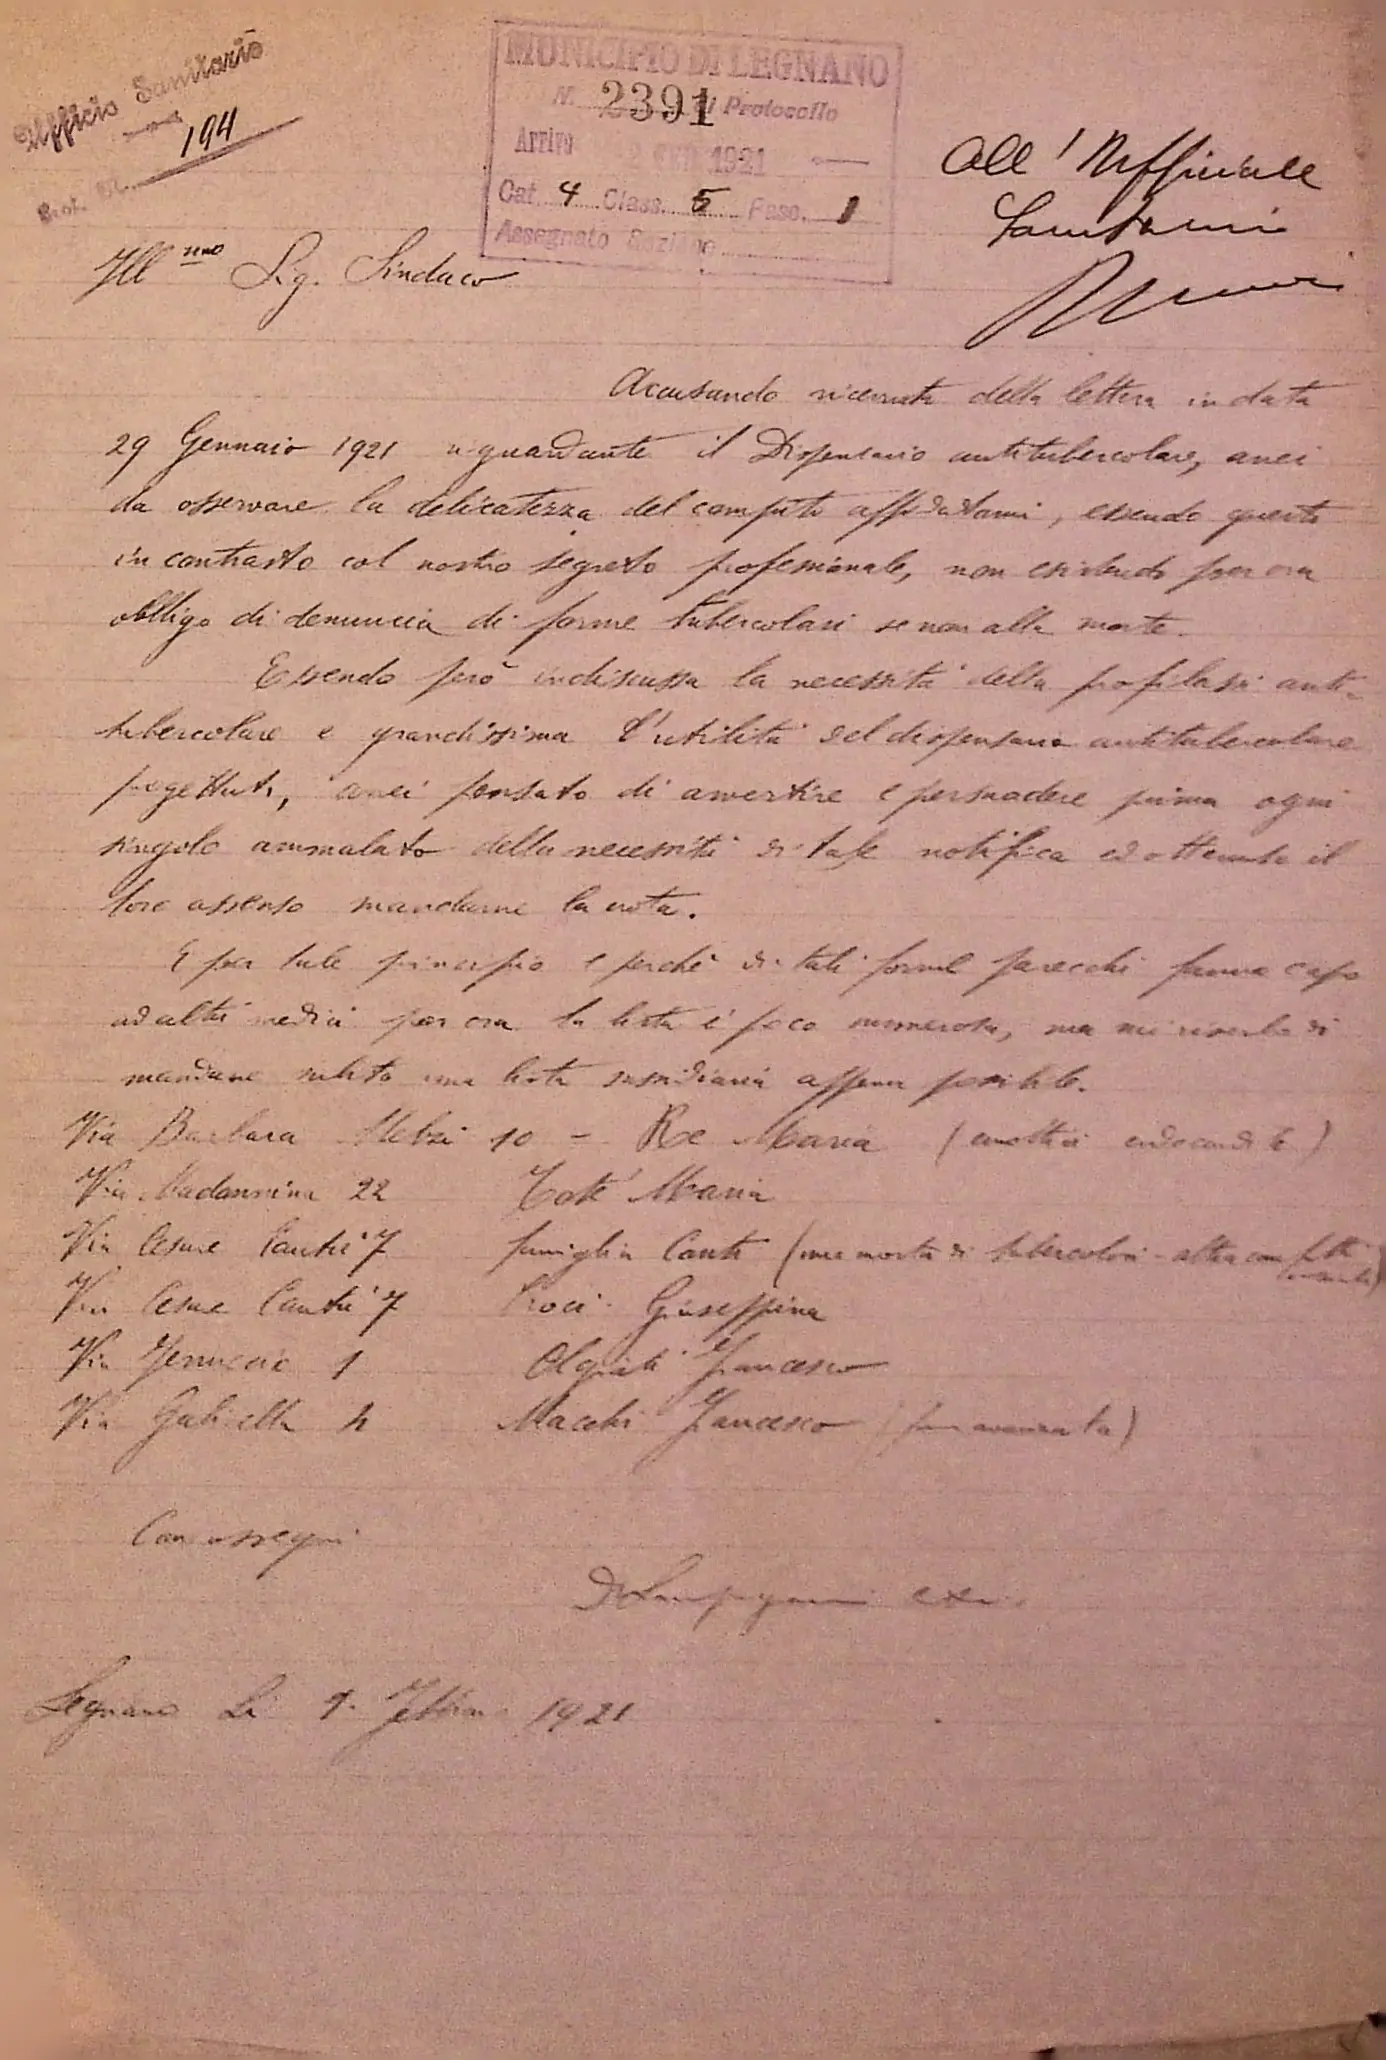 Ufficio Sanitario
Prot. N. 194
MUNICIPIO DI LEGNANO
N. 2391 di Protocollo
Arrivo 1921
Cat. 4 Class. 5 Fasc. 1
Assegnato Sezione
All'Ufficiale
Sanitario
Ill mo Sig. Sindaco
Accusando ricevuta della lettera in data
29 Gennaio 1921 riguardante il Dispensario antitubercolare, avrei
da osservare la delicatezza del compito affidatomi, essendo questo
in contrasto col nostro segreto professionale, non esistendo per ora
obbligo di denuncia di forme tubercolari se non alla morte.
Essendo però indiscussa la necessità della profilassi anti-
tubercolare e grandissima l'utilità del dispensario antitubercolare
progettato, avrei pensato di avvertire e persuadere prima ogni
singolo ammalato della necessità di tale notifica ed ottenuto il
loro assenso mandarne la nota.
E per tale principio e perchè di tali forme parecchi fanno capo
ad altri medici per ora la lista è poco numerosa, ma mi riserbo di
mandare subito una lista sussidiaria appena possibile.
Via Barbara Melzi 10 - Re Maria (
Via Madonnina 22 Maria
Via Cesare Cantù 7 famiglia (una morta di tubercolosi - altra con fatti
Via Cesare Cantù 7 Croci Giuseppina
Via 1 Olgiati Francesco
Via Macchi Francesco (forma avanzata)
Con ossequi
Legnano Li Febbraio 1921